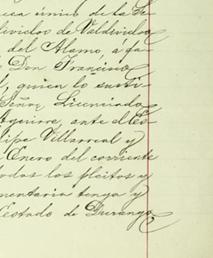 eca único de la Te
livicios de Valdivielso
del Alamo, a fa
Don Francisco
, quien lo susti
Señor Licenciado
Aguirre, ante el Es
lipe Villarreal y
Enero del corriente
odos los pleitos y
mentaria tenga y
Estado de Durango